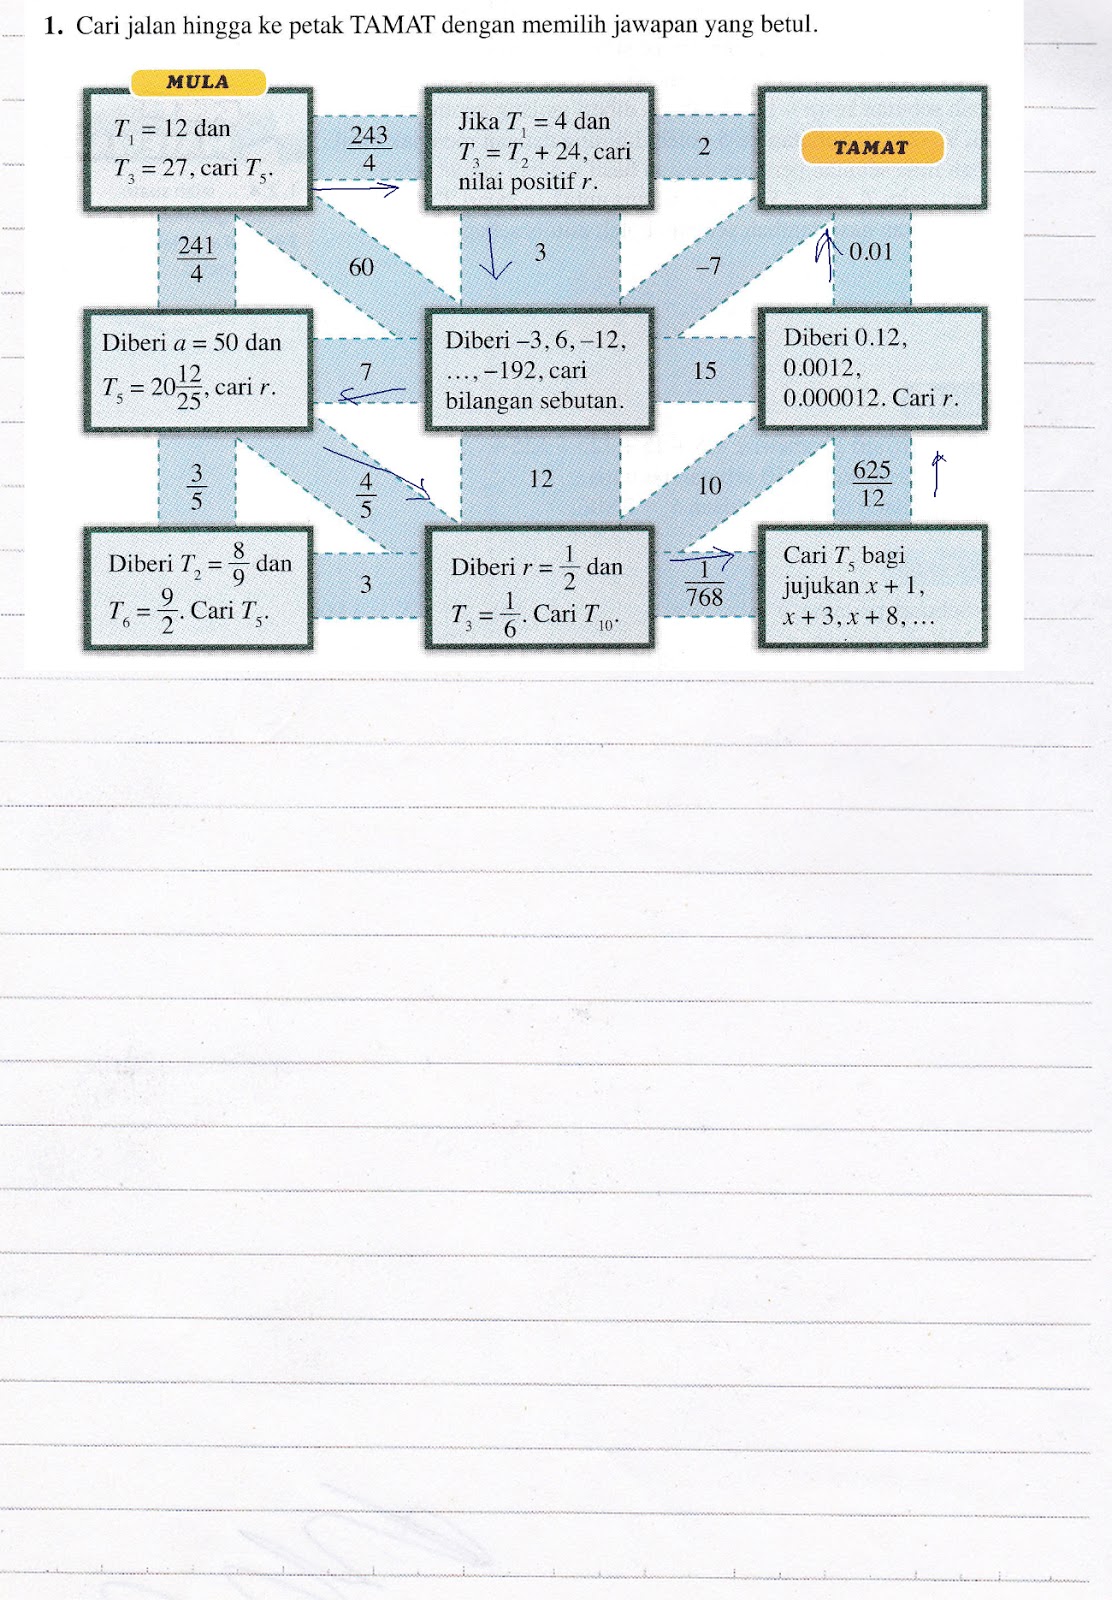 1. Cari jalan hingga ke petak TAMAT dengan memilih jawapan yang betul.
MULA
T₁ = 12 dan
T₃ = 27, cari T₅.
243/4
Jika T₁ = 4 dan
T₃ = T₂ + 24, cari
nilai positif r.
2
TAMAT
241/4
60
3
–7
0.01
Diberi a = 50 dan
T₅ = 20 12/25, cari r.
7
Diberi –3, 6, –12,
…, –192, cari
bilangan sebutan.
15
Diberi 0.12,
0.0012,
0.000012. Cari r.
3/5
4/5
12
10
625/12
Diberi T₂ = 8/9 dan
T₆ = 9/2. Cari T₅.
3
Diberi r = 1/2 dan
T₃ = 1/6. Cari T₁₀.
1/768
Cari T₅ bagi
jujukan x + 1,
x + 3, x + 8, …